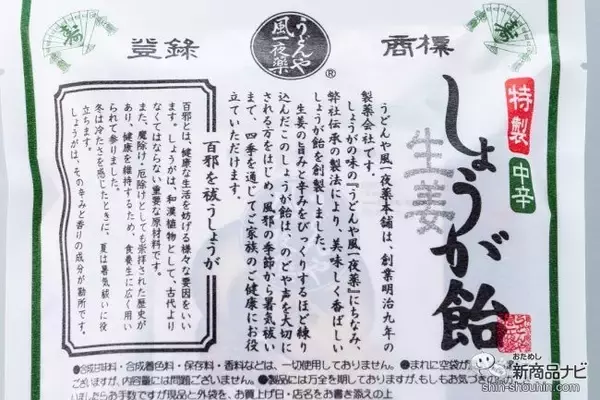 登録
商標
うどんや
風一夜薬
®
寿
寿
特製
中辛
しょうが飴
生姜
うどんや風一夜薬本舗は、創業明治九年の
製薬会社です。
しょうがの味の『うどんや風一夜薬』にちなみ、
弊社伝承の製法により、美味しく香ばしい
しょうが飴を創製しました。
生姜の旨みと辛みをびっくりするほど練り
込んだこのしょうが飴は、のどや声を大切に
される方をはじめ、風邪の季節から暑気祓い
まで、四季を通じてご家族のご健康にお役
立ていただけます。
百邪を祓うしょうが
百邪とは、健康な生活を妨げる様々な要因をいい
ます。しょうがは、和漢植物として、古代より
なくてはならない重要な原材料です。
また、魔除け・厄除けとしても崇拝された歴史が
あり、健康を維持するため、食養生に広く用い
られて参りました。
冬は冷たさを感じたときに、夏は暑気祓いに役
立ちます。
しょうがは、その辛みと香りの成分が勘所です。
●合成甘味料・合成着色料・保存料・香料などは、一切使用しておりません。●まれに空袋が
ございますが、内容量には問題ございません。●製品には万全を期しておりますが、もしもお気づきの
いましたらお手数ですが現品と外袋を、お買上げ日・店名をお書き添えの上
おためし
新商品ナビ
shin-shouhin.com